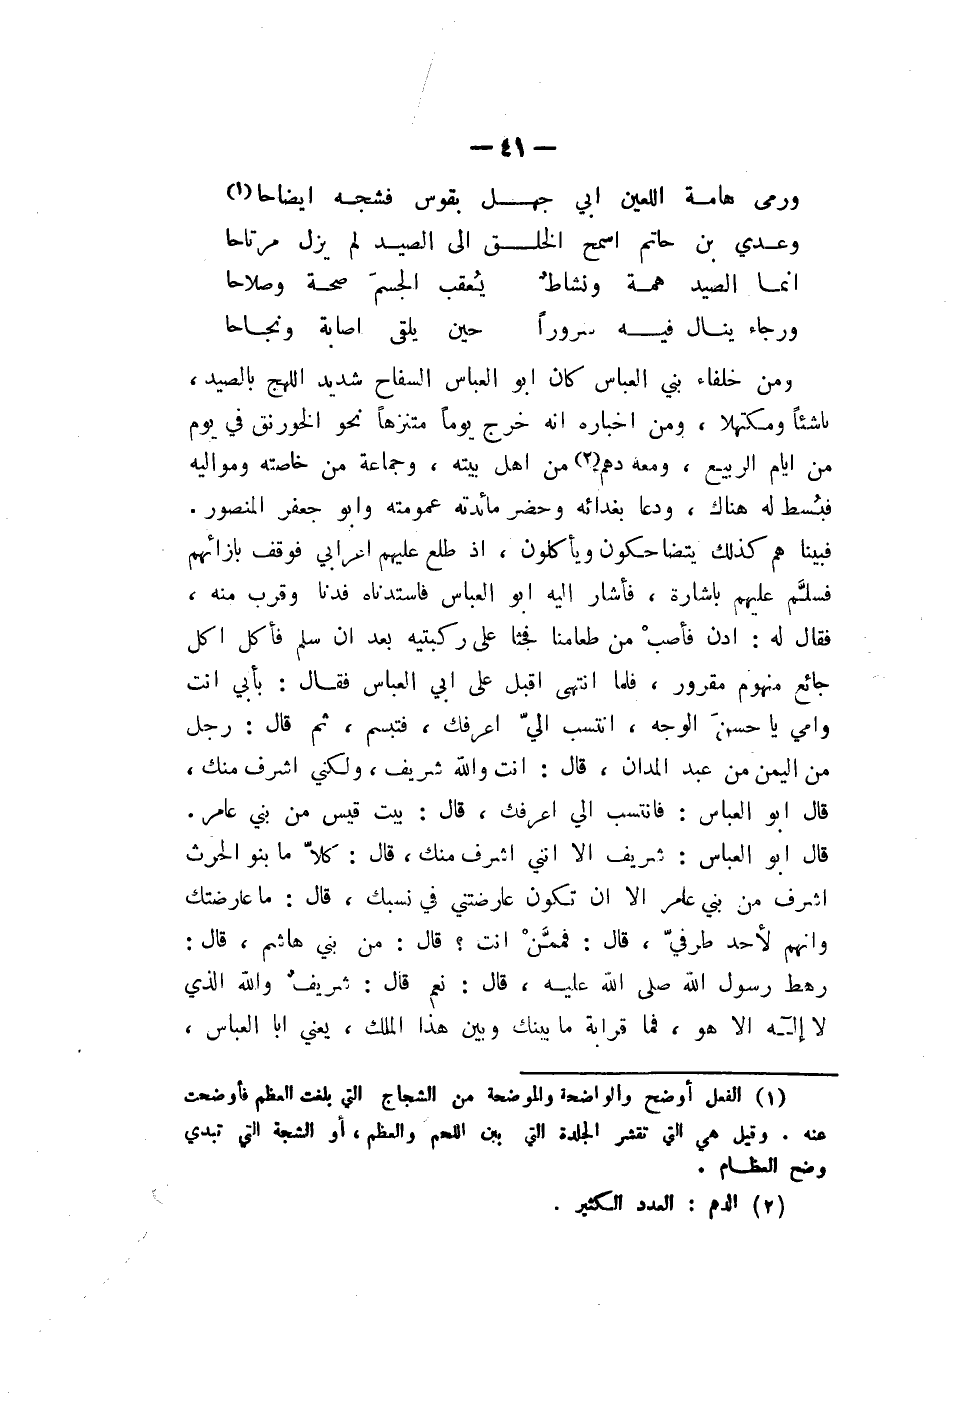 — ٤١ —
ورمى هامـة اللعين ابي جهــــل بقوس فشجــه ايضاحا(١)
وعــدي بن حاتم اسمح الخلــــق الى الصيـد لم يزل مرتاحا
انمـا الصيد همـة ونشاطٌ يُعقب الجسمَ صحـة وصلاحا
ورجاء ينـال فيــــه سروراً حين يلقى اصابة ونجـاحا
ومن خلفاء بني العباس كان ابو العباس السفاح شديد اللهج بالصيد ،
ناشئاً ومكتهلا ، ومن اخباره انه خرج يوماً متنزهاً نحو الخورنق في يوم
من ايام الربيع ، ومعه دهم(٢) من اهل بيته ، وجماعة من خاصته ومواليه
فبُسط له هناك ، ودعا بغدائه وحضر مائدته عمومته وابو جعفر المنصور .
فبينا هم كذلك يتضاحكون ويأكلون ، اذ طلع عليهم اعرابي فوقف بازائهم
فسلَّم عليهم باشارة ، فأشار اليه ابو العباس فاستدناه فدنا وقرب منه ،
فقال له : ادن فأصبْ من طعامنا فجثا على ركبتيه بعد ان سلم فأكل اكل
جائع منهوم مقرور ، فلما انتهى اقبل على ابي العباس فقـال : بأبي انت
وامي يا حسنَ الوجه ، انتسب اليّ اعرفك ، فتبسم ، ثم قال : رجل
من اليمن من عبد المدان ، قال : انت والله شريف ، ولكني اشرف منك ،
قال ابو العباس : فانتسب الي اعرفك ، قال : بيت قيس من بني عامر .
قال ابو العباس : شريف الا انني اشرف منك ، قال : كلاّ ما بنو الحرث
اشرف من بني عامر الا ان تكون عارضتني في نسبك ، قال : ما عارضتك
وانهم لأحد طرفيّ ، قال : فممَّنْ انت ؟ قال : من بني هاشم ، قال :
رهط رسول الله صلى الله عليـه ، قال : نعم قال : شريفٌ والله الذي
لا إلـٓه الا هو ، فما قرابة ما بينك وبين هذا الملك ، يعني ابا العباس ،
(١) الفعل أوضح والواضحة والموضحة من الشجاج التي بلغت العظم فأوضحت
عنه . وقيل هي التي تقشر الجلدة التي بين اللحم والعظم ، أو الشجة التي تبدي
وضح العظـام .
(٢) الدهم : العدد الكثير .